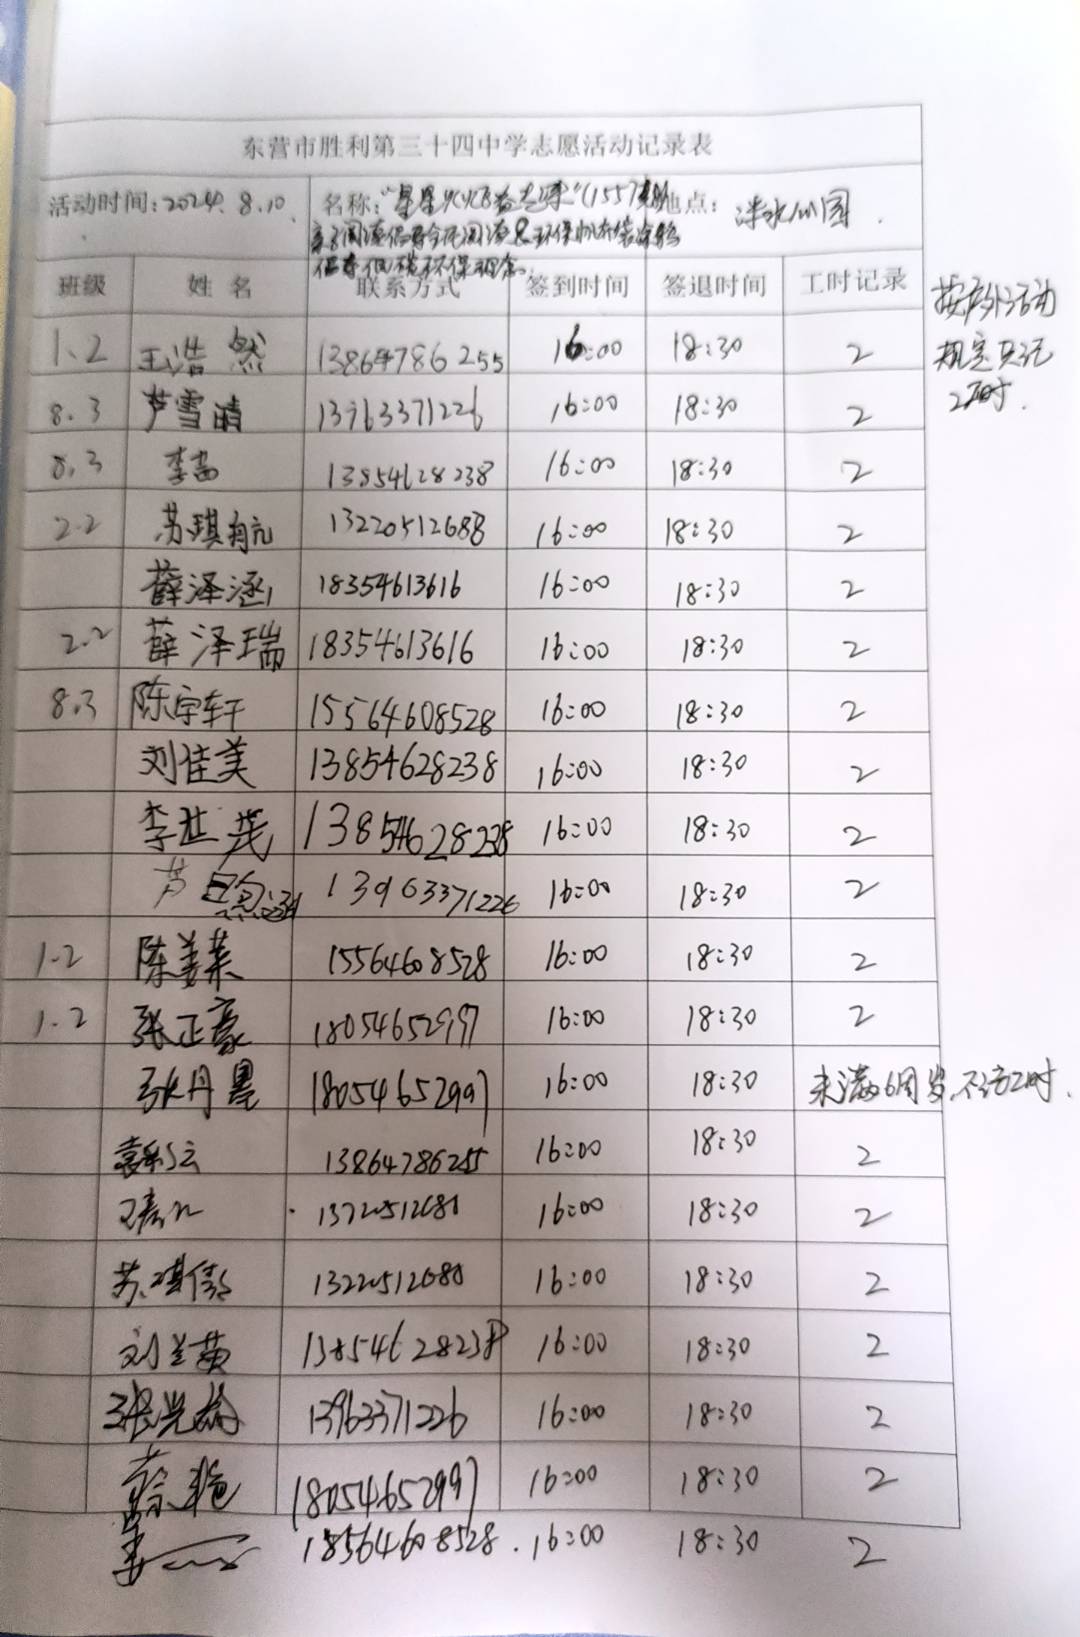 东营市胜利第三十四中学志愿活动记录表
活动时间：2024.8.10. 名称：“星星火炬 (1557 地点：
倡导低碳环保理念.
班级 姓名 联系方式 签到时间 签退时间 工时记录
按户外活动
规定只记
2工时.
1.2 王浩然 13864786255 16:00 18:30 2
8.3 芦雪晴 13963371226 16:00 18:30 2
8.3 李 13854628238 16:00 18:30 2
2.2 苏琪航 13220512688 16:00 18:30 2
薛泽涵 18354613616 16:00 18:30 2
2.2 薛泽瑞 18354613616 16:00 18:30 2
8.3 陈宇轩 15564608528 16:00 18:30 2
刘佳美 13854628238 16:00 18:30 2
李世茂 13854628238 16:00 18:30 2
芦 13963371226 16:00 18:30 2
1.2 陈姜莱 15564608528 16:00 18:30 2
1.2 张正豪 18054652997 16:00 18:30 2
张丹墨 18054652997 16:00 18:30 未满6周岁,不记工时.
13864786255 16:00 18:30 2
16:00 18:30 2
苏琪 16:00 18:30 2
刘兰英 13854628238 16:00 18:30 2
张 13963371226 16:00 18:30 2
18054652997 16:00 18:30 2
18564608528. 16:00 18:30 2